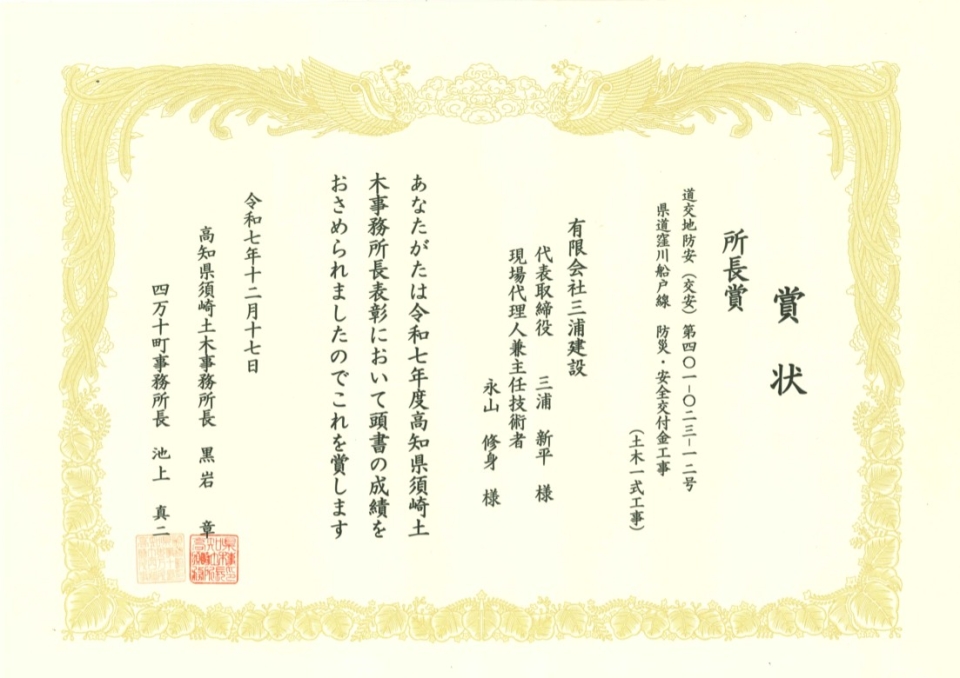 賞状
所長賞
道交地防安（交安）第四〇一－〇二三－一二号
県道窪川船戸線　防災・安全交付金工事
（土木一式工事）
有限会社三浦建設
代表取締役　三浦　新平　様
現場代理人兼主任技術者
永山　修身　様
あなたがたは令和七年度高知県須崎土
木事務所長表彰において頭書の成績を
おさめられましたのでこれを賞します
令和七年十二月十七日
高知県須崎土木事務所長　黒岩　章
四万十町事務所長　池上　真二